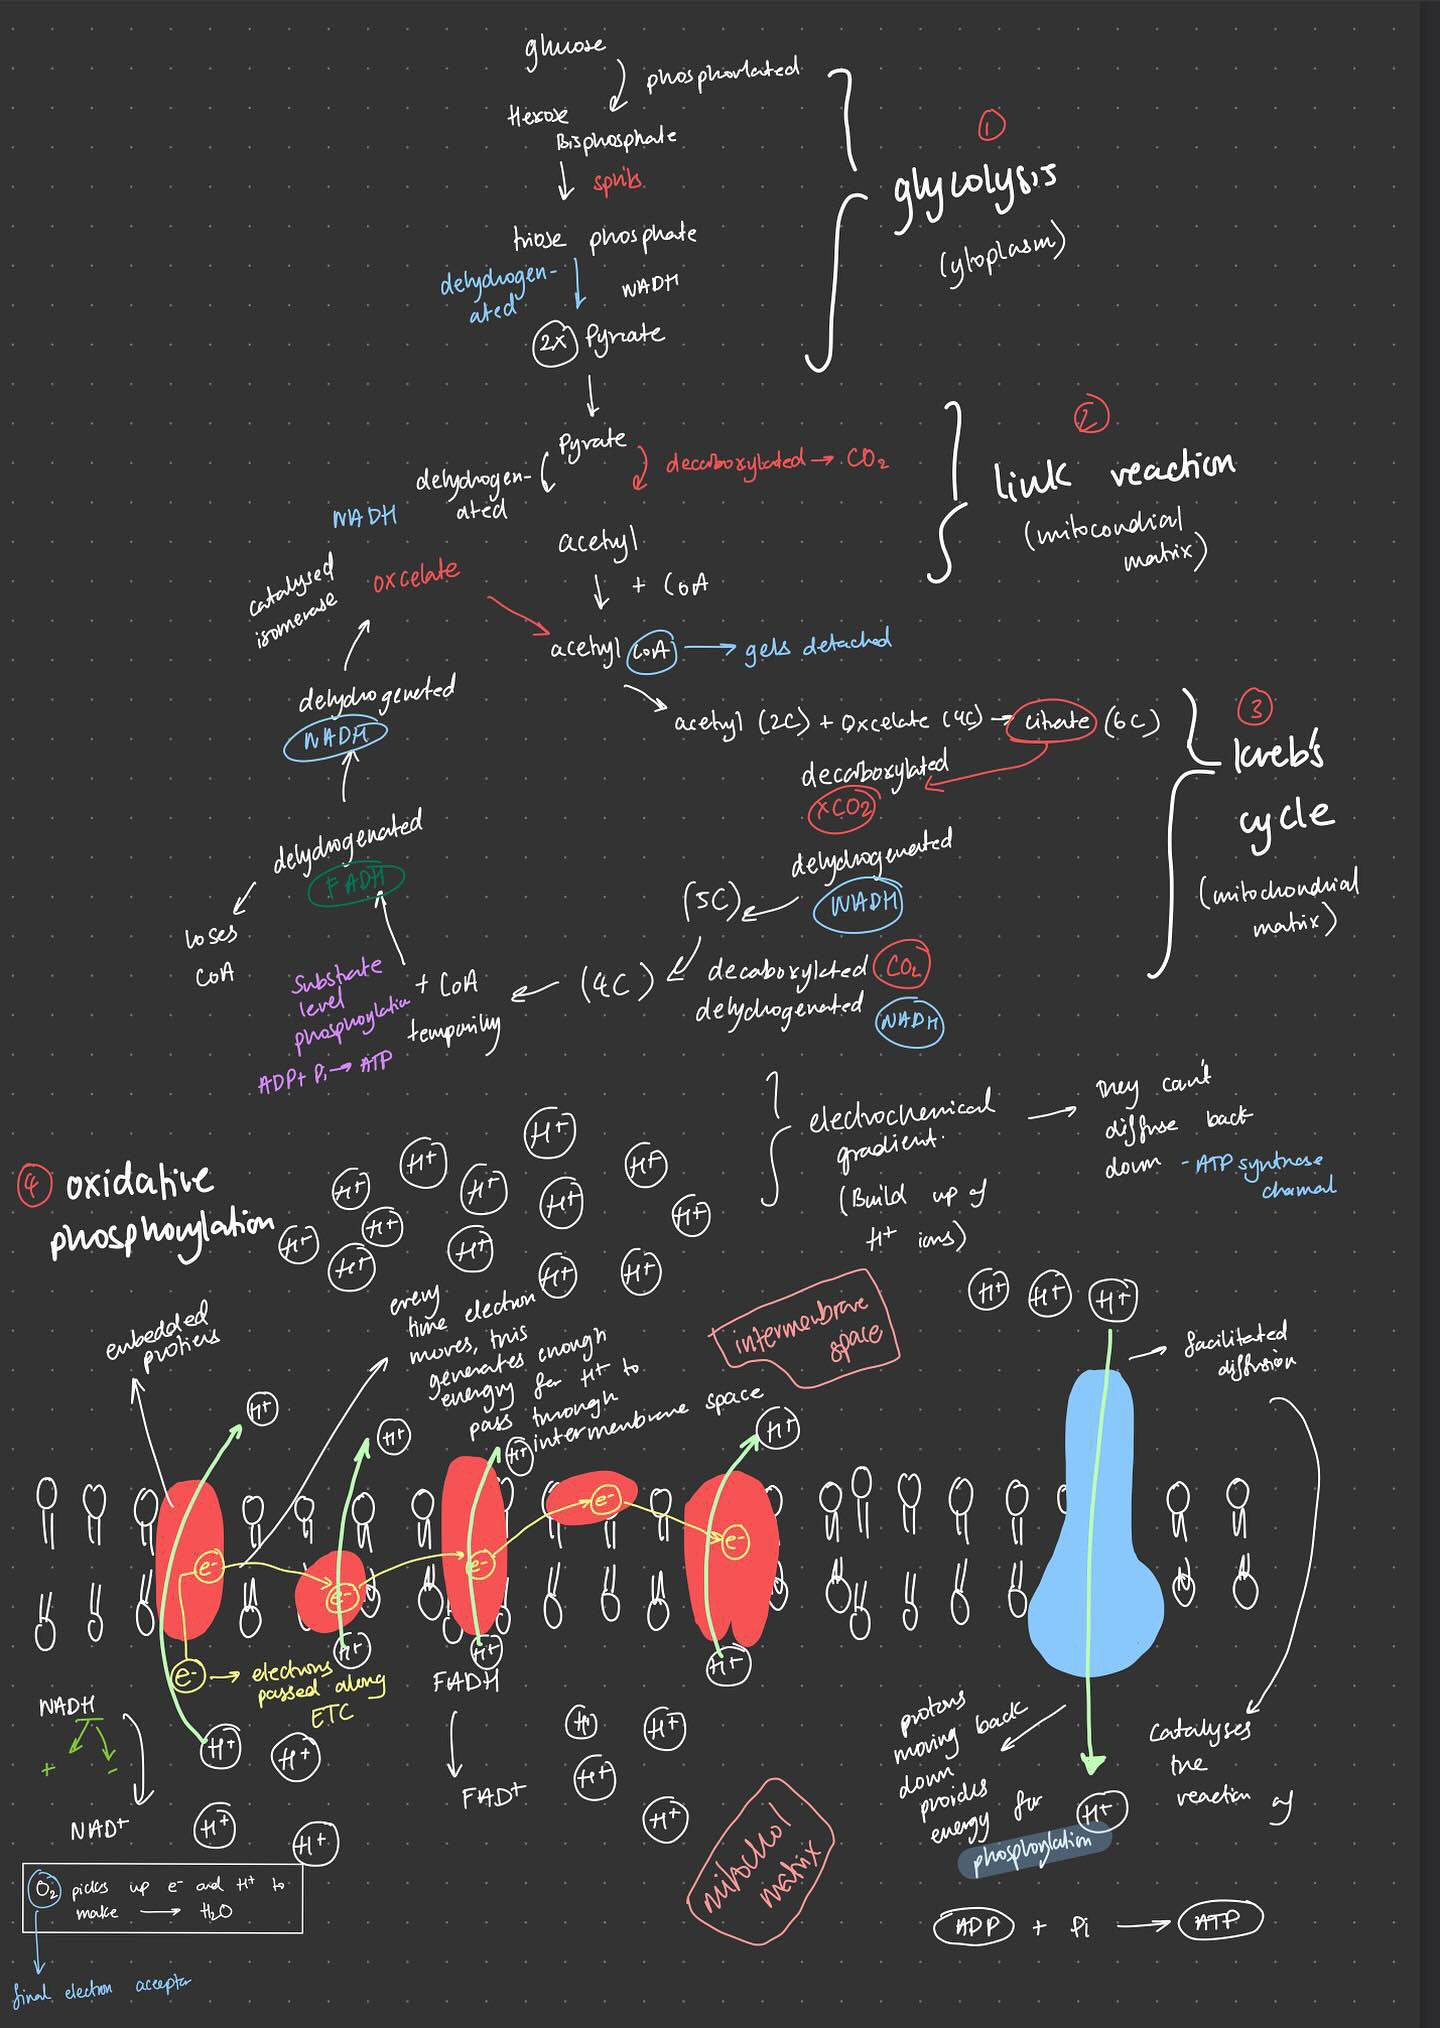 glucose
phosphorlated
Hexose
Bisphosphate
splits
triose phosphate
dehydrogen-
ated
NADH
2x Pyrate
①
glycolysis
(cytoplasm)
Pyrate
decarboxylated → CO2
dehydrogen-
ated
NADH
acetyl
+ CoA
②
link reaction
(mitocondial
matrix)
catalysed
isomerase
oxcelate
acetyl CoA → gets detached
dehydrogenated
NADH
acetyl (2C) + Oxcelate (4C) → citrate (6C)
③
kreb's
cycle
(mitochondrial
matrix)
decarboxylated
xCO2
dehydrogenated
NADH
dehydrogenated
FADH
loses
CoA
(5C)
decaboxylated CO2
dehydrogenated NADH
(4C)
+ CoA
temporily
Substrate
level
phosphoylation
ADP + Pi → ATP
④ oxidative
phosphorylation
H+ H+ H+ H+ H+ H+ H+ H+ H+ H+ H+ H+ H+
electrochemical
gradient.
(Build up of
H+ ions)
→ they can't
diffuse back
down - ATP synthase
channal
embedded
protiens
every
time electron
moves, this
generates enough
energy for H+ to
pass through
intermembrane space
intermembrave
space
H+ H+ H+
facilitated
diffusion
H+ H+ H+ H+
e- e- e- e- e-
e- → electrons
passed along
ETC
H+ H+ H+
NADH
+ -
NAD+
H+ H+
H+ H+
FADH
FAD+
H+ H+
H+
H+
mitochol
matrix
protons
moving back
down
proides
energy for
phosphorylation
H+
catalyses
the
reaction of
ADP + Pi → ATP
O2 picks up e- and H+ to
make → H2O
final electron acceptor